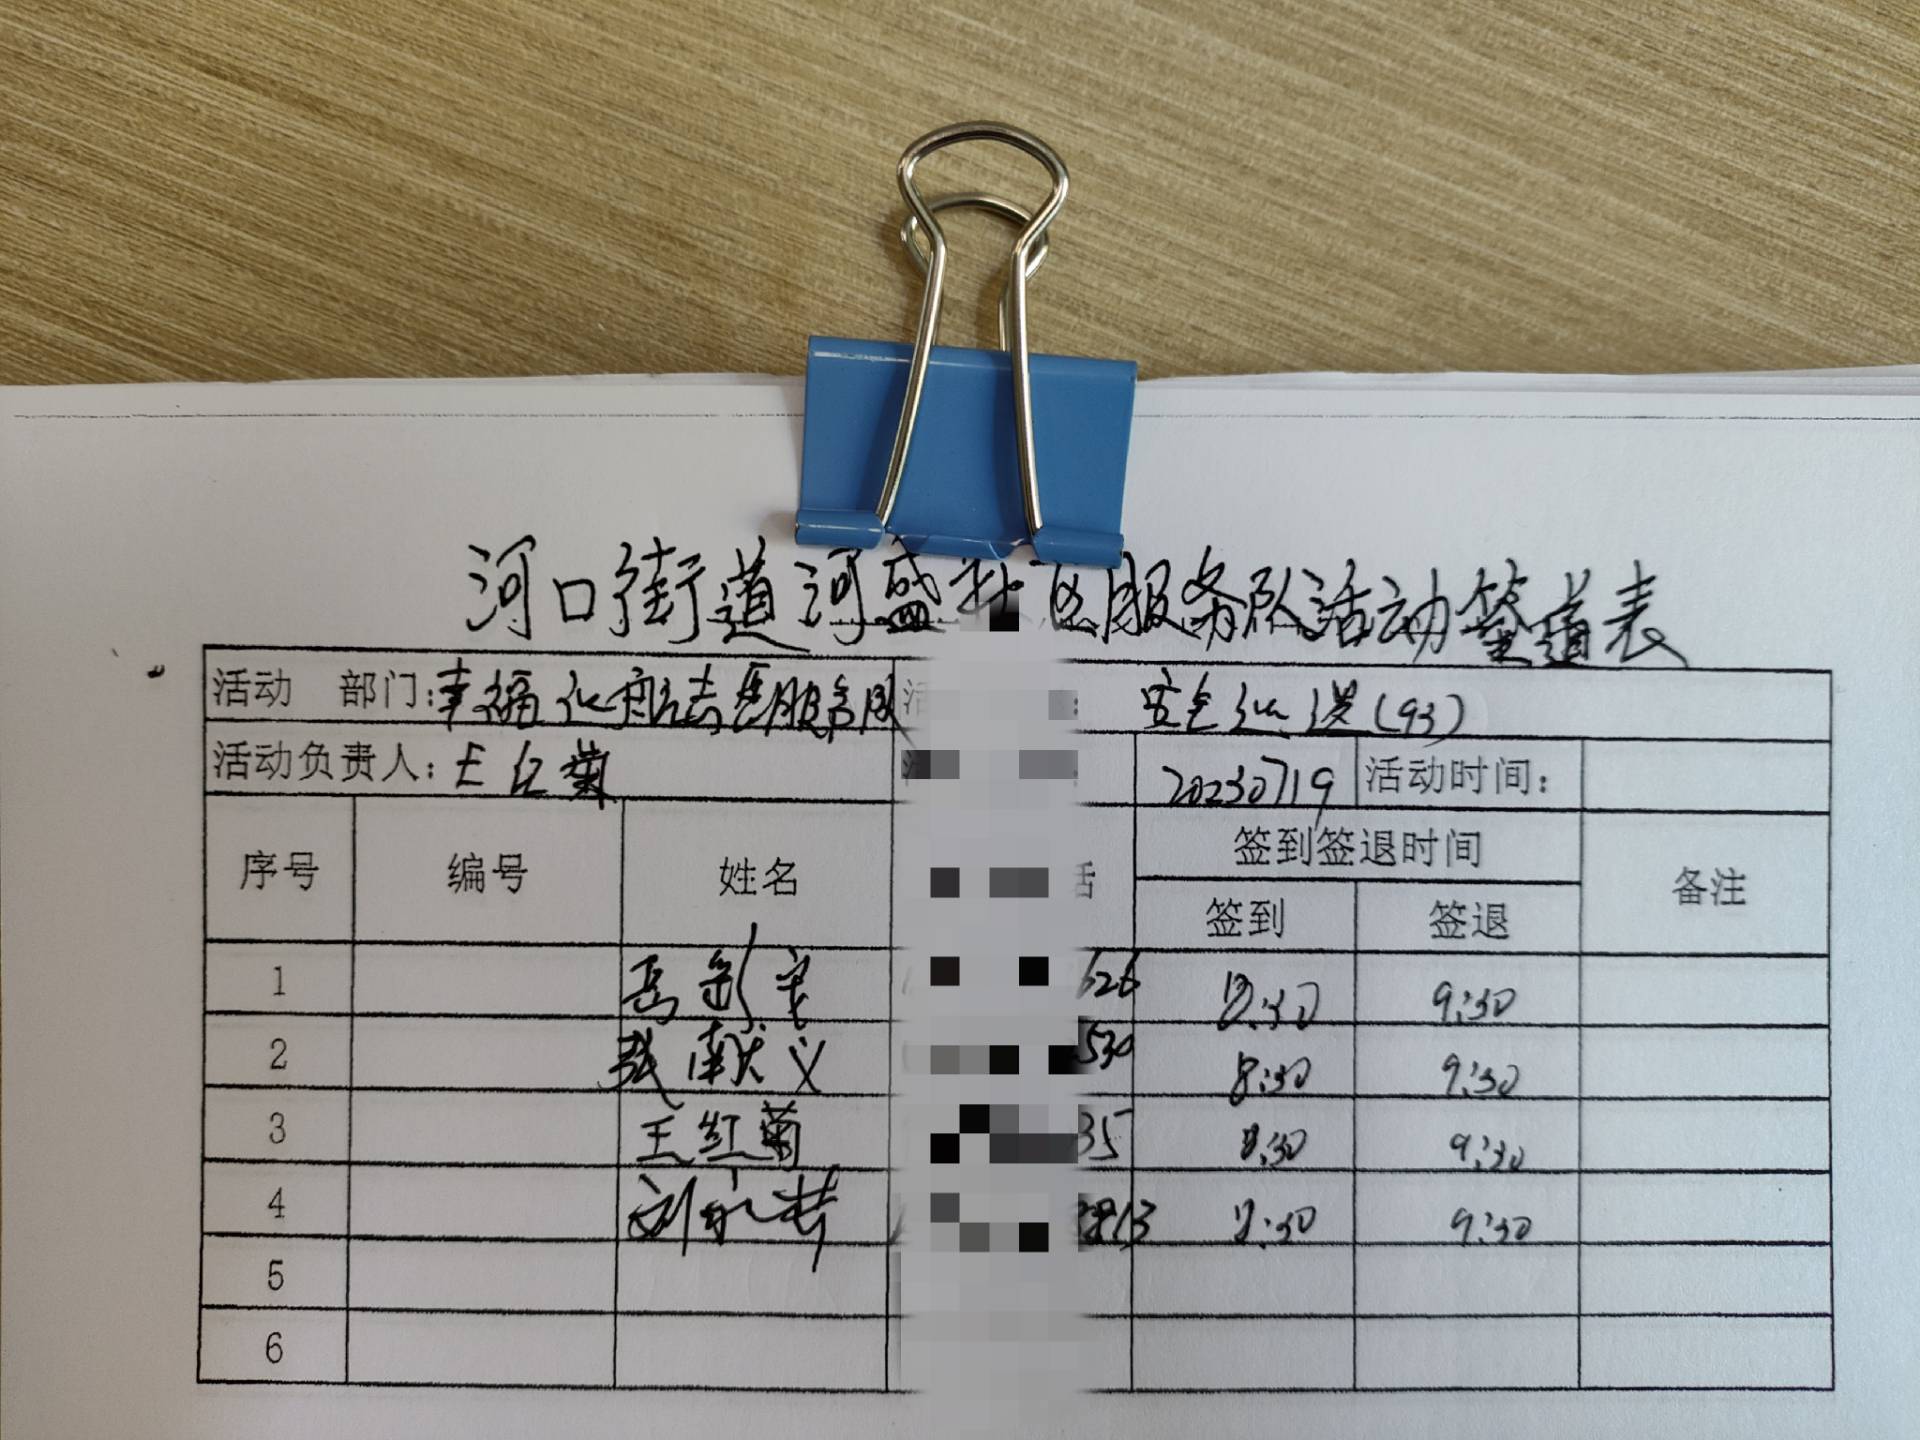 河口街道河盛社区服务队活动签道表
活动 部门:幸福 航志愿服务队 活 : 安全 (93)
活动负责人:王红菊 20230719 活动时间:
序号 编号 姓名 话 签到签退时间 备注
签到 签退
1 626 8:30 9:30
2 张献义 530 8:30 9:30
3 王红菊 35 8:30 9:30
4 刘永 2813 8:30 9:30
5
6